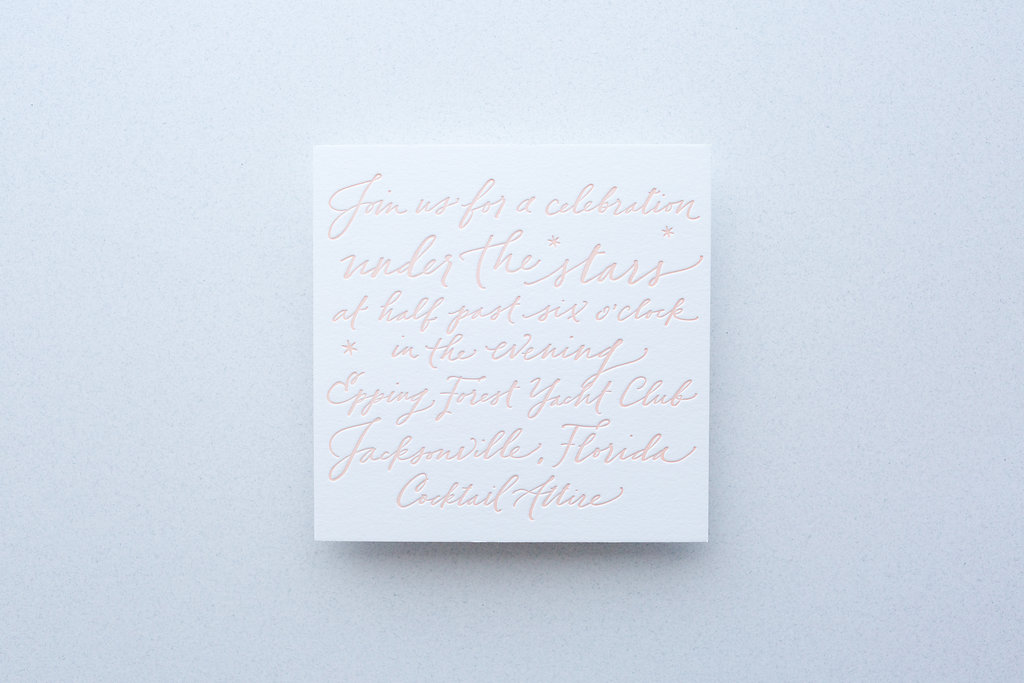 Join us for a celebration
under the * stars *
at half past six o'clock
* in the evening
Epping Forest Yacht Club
Jacksonville, Florida
Cocktail Attire